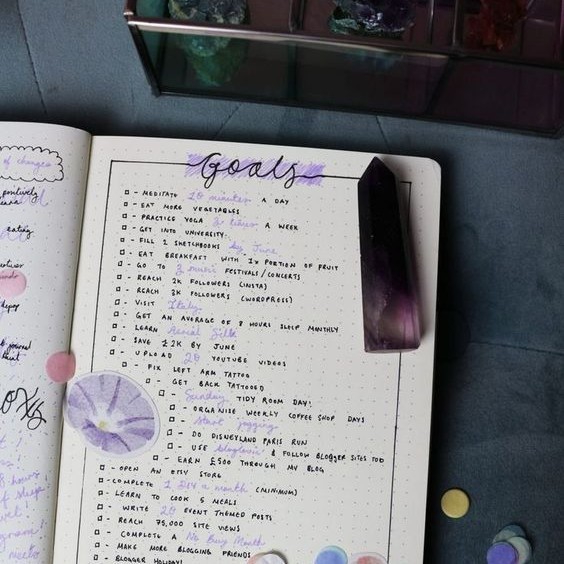 of changes
positively
eating
Goals
- MEDITATE 10 minutes A DAY
- EAT MORE VEGETABLES
- PRACTICE YOGA 3 times A WEEK
- GET INTO UNIVERSITY
- FILL 2 SKETCHBOOKS by June
- EAT BREAKFAST WITH 1x PORTION OF FRUIT
- GO TO 3 music FESTIVALS/CONCERTS
- REACH 2K FOLLOWERS (INSTA)
- REACH 3K FOLLOWERS (WORDPRESS)
- VISIT Italy
- GET AN AVERAGE OF 8 HOURS SLEEP MONTHLY
- LEARN Aerial Silk
- SAVE £2K BY JUNE
- UPLOAD 20 YOUTUBE VIDEOS
- FIX LEFT ARM TATTOO
- GET BACK TATTOOED
- Sunday TIDY ROOM DAY!
- ORGANISE WEEKLY COFFEE SHOP DAYS
- start jogging
- DO DISNEYLAND PARIS RUN
- USE bloglovin' & FOLLOW BLOGGER SITES TOO
- EARN £500 THROUGH MY BLOG
- OPEN AN ETSY STORE
- COMPLETE 1 DIY a month (MINIMUM)
- LEARN TO COOK 5 MEALS
- WRITE 20 EVENT THEMED POSTS
- REACH 75,000 SITE VIEWS
- COMPLETE A No Buy Month
- MAKE MORE BLOGGING FRIENDS
- BLOGGER HOLIDAY!